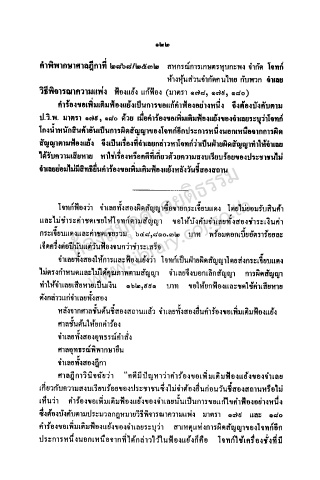 ๑๒๒
คำพิพากษาศาลฎีกาที่ ๒๘๖๘/๒๕๓๒ สหกรณ์การเกษตรหุบกะพง จำกัด โจทก์
ห้างหุ้นส่วนจำกัดคนไทย กับพวก จำเลย
วิธีพิจารณาความแพ่ง ฟ้องแย้ง แก้ฟ้อง (มาตรา ๑๗๘, ๑๗๙, ๑๘๐)
คำร้องขอเพิ่มเติมฟ้องแย้งเป็นการขอแก้คำฟ้องอย่างหนึ่ง จึงต้องบังคับตาม
ป.วิ.พ. มาตรา ๑๗๙, ๑๘๐ ด้วย เมื่อคำร้องขอเพิ่มเติมฟ้องแย้งของจำเลยระบุว่าโจทก์
โกงน้ำหนักสินค้าอันเป็นการผิดสัญญาของโจทก์อีกประการหนึ่งนอกเหนือจากการผิด
สัญญาตามฟ้องแย้ง จึงเป็นเรื่องที่จำเลยกล่าวหาโจทก์ว่าเป็นฝ่ายผิดสัญญาทำให้จำเลย
ได้รับความเสียหาย หาใช่เรื่องหรือคดีที่เกี่ยวด้วยความสงบเรียบร้อยของประชาชนไม่
จำเลยย่อมไม่มีสิทธิยื่นคำร้องขอเพิ่มเติมฟ้องแย้งหลังวันชี้สองสถาน
โจทก์ฟ้องว่า จำเลยทั้งสองผิดสัญญาซื้อขายกระเจี๊ยบแดง โดยไม่ยอมรับสินค้า
และไม่ชำระค่าชดเชยให้โจทก์ตามสัญญา ขอให้บังคับจำเลยทั้งสองชำระเงินค่า
กระเจี๊ยบแดงและค่าชดเชยรวม ๖๔๘,๘๑๐.๓๒ บาท พร้อมดอกเบี้ยอัตราร้อยละ
เจ็ดครึ่งต่อปีนับแต่วันฟ้องจนกว่าชำระเสร็จ
จำเลยทั้งสองให้การและฟ้องแย้งว่า โจทก์เป็นฝ่ายผิดสัญญาโดยส่งกระเจี๊ยบแดง
ไม่ตรงกำหนดและไม่ได้คุณภาพตามสัญญา จำเลยจึงบอกเลิกสัญญา การผิดสัญญา
ทำให้จำเลยเสียหายเป็นเงิน ๑๖๒,๕๕๑ บาท ขอให้ยกฟ้องและชดใช้ค่าเสียหาย
ดังกล่าวแก่จำเลยทั้งสอง
หลังจากศาลชั้นต้นชี้สองสถานแล้ว จำเลยทั้งสองยื่นคำร้องขอเพิ่มเติมฟ้องแย้ง
ศาลชั้นต้นให้ยกคำร้อง
จำเลยทั้งสองอุทธรณ์คำสั่ง
ศาลอุทธรณ์พิพากษายืน
จำเลยทั้งสองฎีกา
ศาลฎีกาวินิจฉัยว่า "คดีมีปัญหาว่าคำร้องขอเพิ่มเติมฟ้องแย้งของจำเลย
เกี่ยวกับความสงบเรียบร้อยของประชาชนซึ่งไม่จำต้องยื่นก่อนวันชี้สองสถานหรือไม่
เห็นว่า คำร้องขอเพิ่มเติมฟ้องแย้งของจำเลยนั้นเป็นการขอแก้ไขคำฟ้องอย่างหนึ่ง
ซึ่งต้องบังคับตามประมวลกฎหมายวิธีพิจารณาความแพ่ง มาตรา ๑๗๙ และ ๑๘๐
คำร้องขอเพิ่มเติมฟ้องแย้งของจำเลยระบุว่า สาเหตุแห่งการผิดสัญญาของโจทก์อีก
ประการหนึ่งนอกเหนือจากที่ได้กล่าวไว้ในฟ้องแย้งก็คือ โจทก์ใช้เครื่องชั่งที่มี